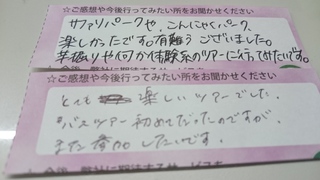 ☆ご感想や今後行ってみたい所をお聞かせください
サファリパークや、こんにゃくパーク、
楽しかったです。有難う ございました。
芋掘りや何か体験系のツアーに行ってみたいです。
☆ご感想や今後行ってみたい所をお聞かせください
とても 楽しいツアーでした。
バスツアー初めてだったのですが、
また参加したいです。